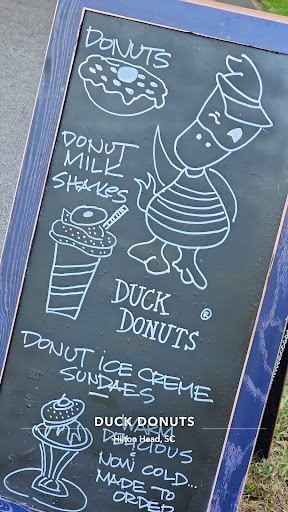 DONUTS
DONUT
MILK
SHAKES
DUCK
DONUTS ®
DONUT iCE CREME
SUNDAES
DUCK DONUTS
Hilton Head, SC
WARM
DELICIOUS
&
NOW COLD...
MADE TO
ORDER